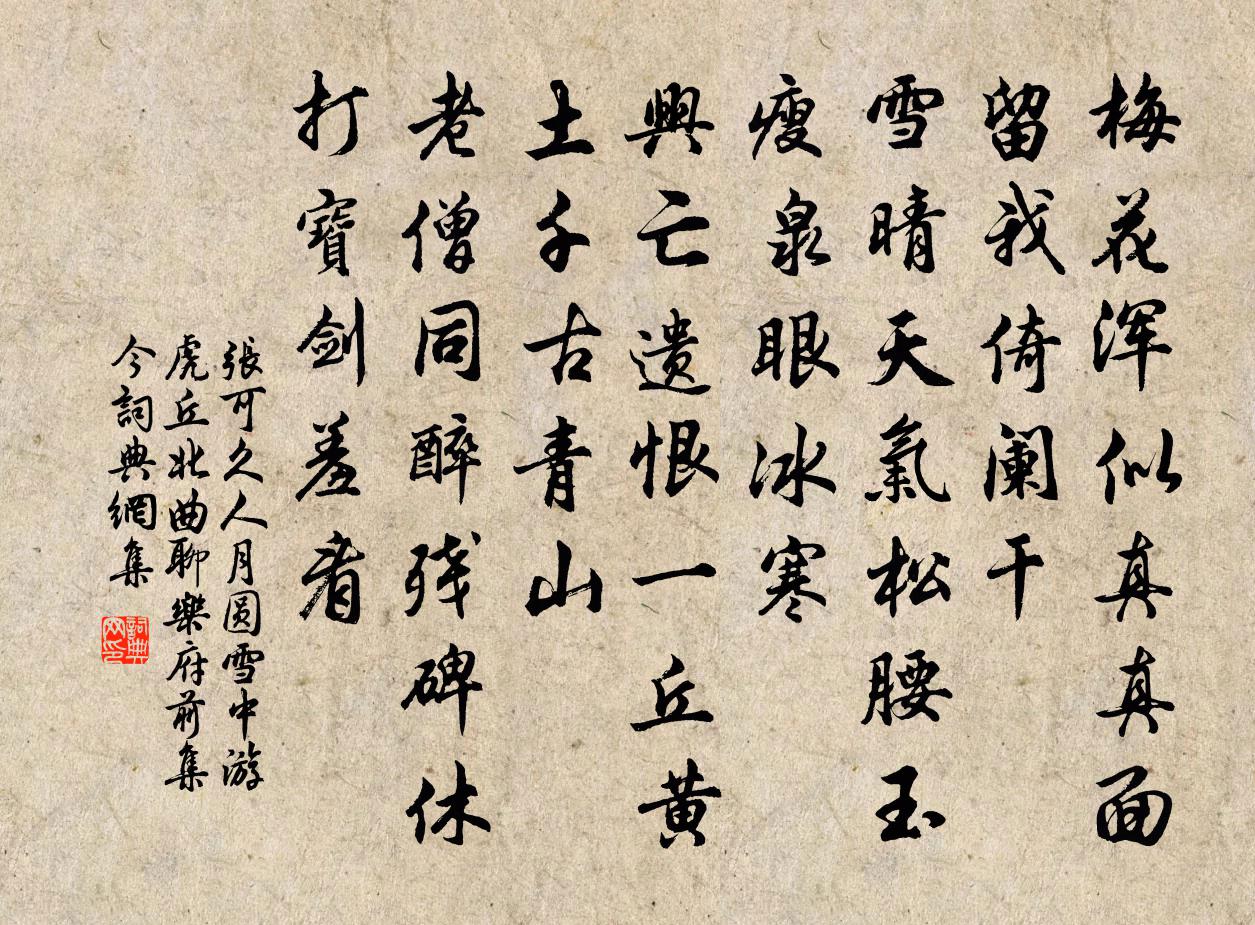 梅花浑似真真面
留我倚阑干
雪晴天氣松腰玉
瘦泉眼冰寒
興亡遗恨一丘黄
土千古青山
老僧同醉残碑休
打寳剑羞看
張可久人月圆雪中游
虎丘北曲聊樂府前集
今詞典網集
詞典网印